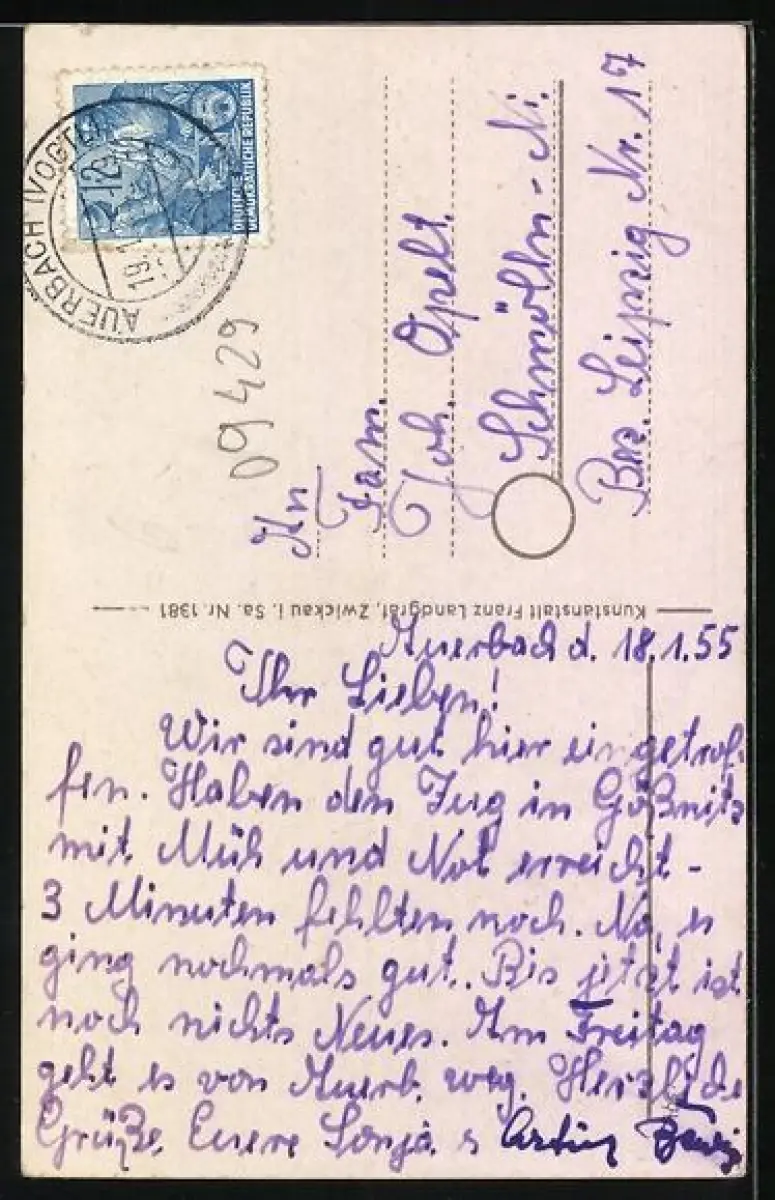 DEUTSCHE
DEMOKRATISCHE REPUBLIK
AUERBACH (VOGTL
19.1. -12
09429
An
Fam.
Joh. Opelt.
Schmölln-Ni.
Bez. Leipzig Nr. 17
Kunstanstalt Franz Landgraf, Zwickau i. Sa. Nr. 1381
Auerbach d. 18.1.55
Ihr Lieben!
Wir sind gut hier eingetrof-
fen. Haben den Zug in Gößnitz
mit Müh und Not erreicht -
3 Minuten fehlten noch. Na, es
ging nochmals gut. Bis jetzt ist
noch nichts Neues. Am Freitag
geht es von Auerb. weg. Herzliche
Grüße Euere Sonja